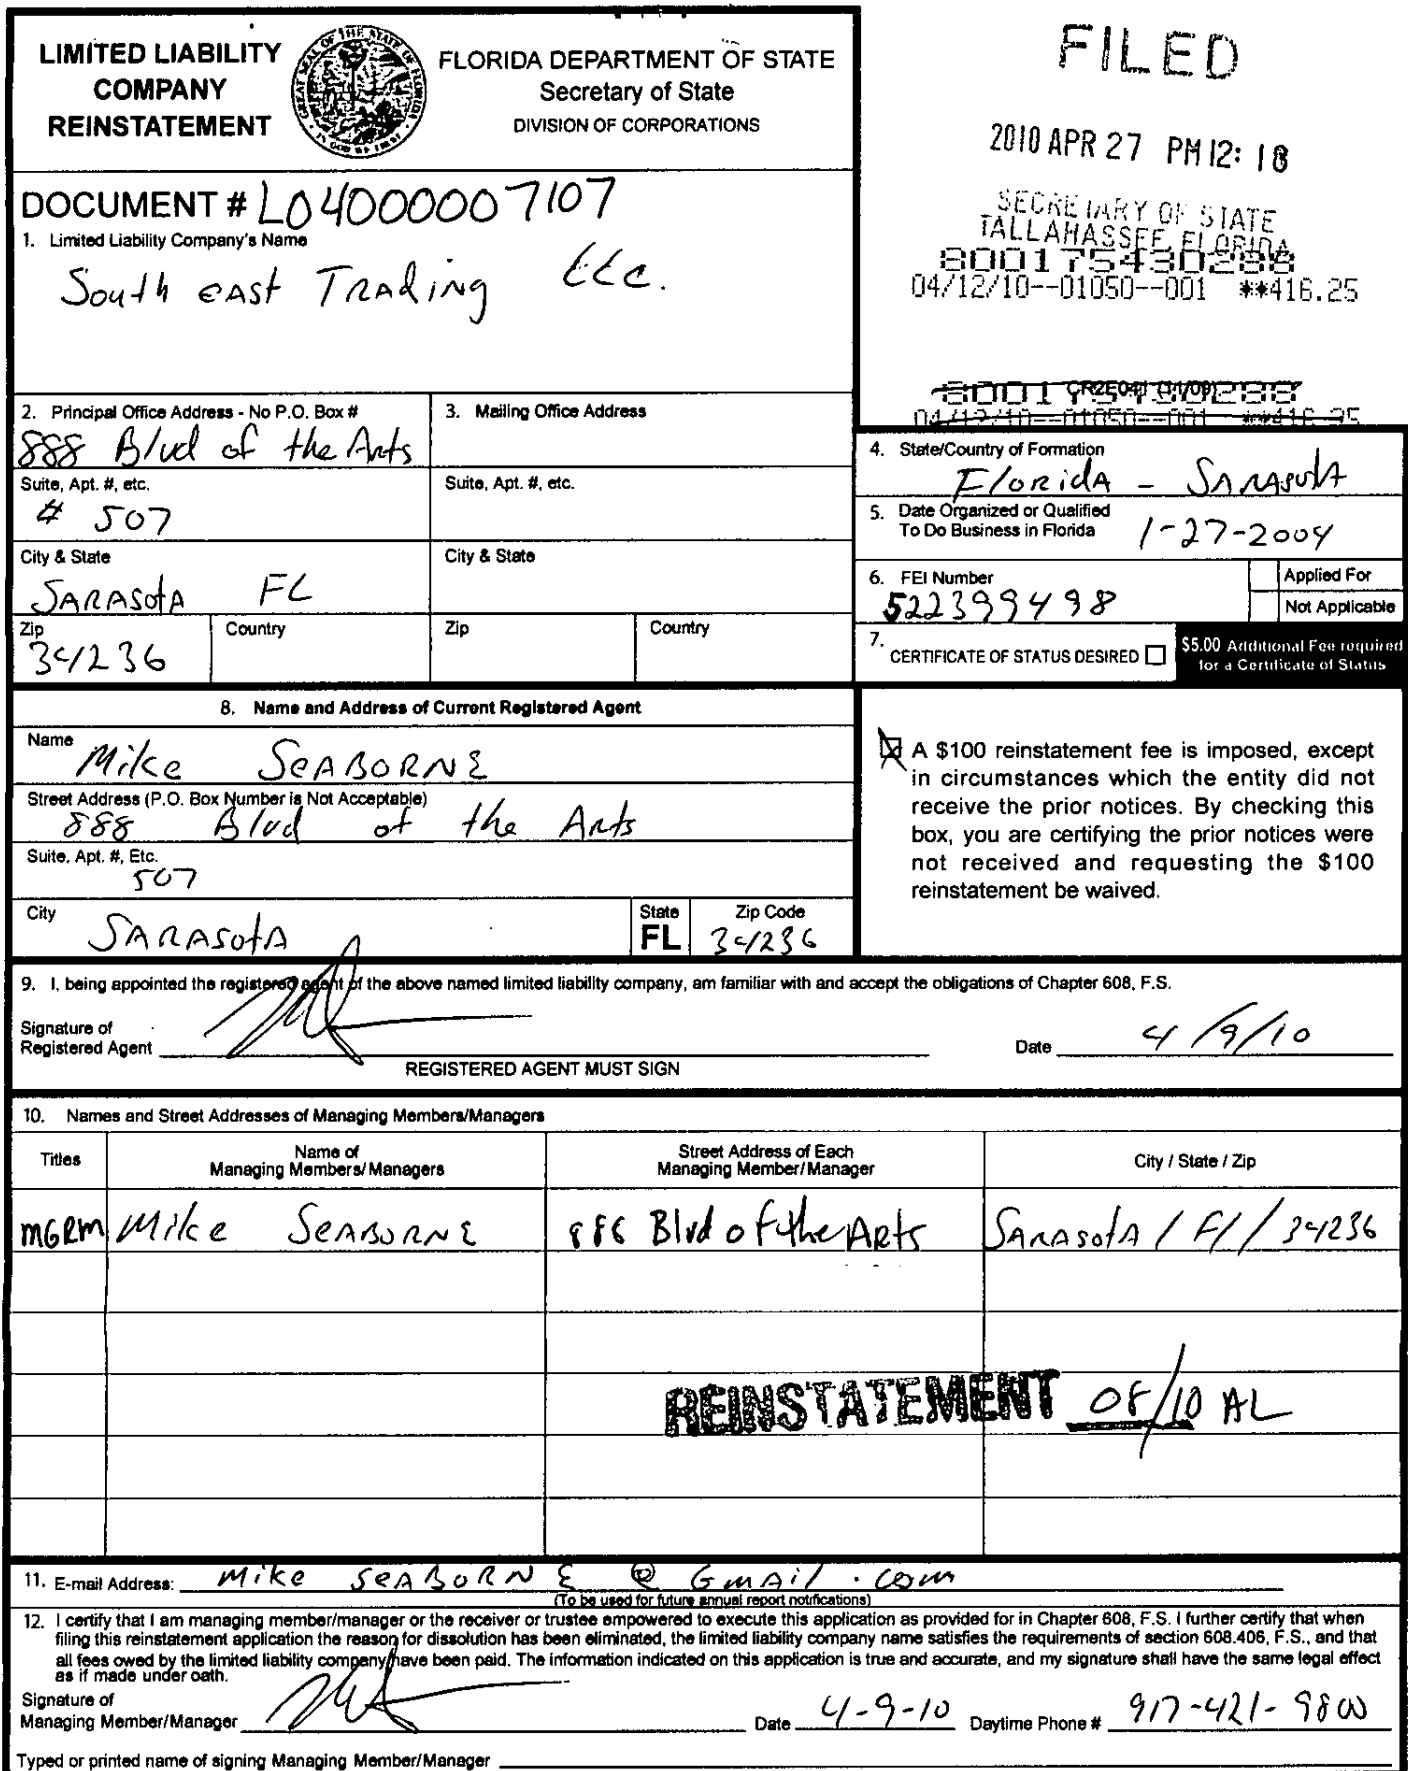 LIMITED LIABILITY
COMPANY
REINSTATEMENT
FLORIDA DEPARTMENT OF STATE
Secretary of State
DIVISION OF CORPORATIONS
FILED
2010 APR 27 PM 12: 18
SECRETARY OF STATE
TALLAHASSEE, FLORIDA
800175430288
04/12/10--01050--001 **416.25
DOCUMENT # L04000007107
1. Limited Liability Company's Name
South eAst TRAding LLC.
800175430288
CR2E041 (11/09)
04/12/10--01050--001 **416.25
2. Principal Office Address - No P.O. Box #
888 Blvd of the Arts
3. Mailing Office Address
Suite, Apt. #, etc.
# 507
Suite, Apt. #, etc.
City & State
SARASotA FL
City & State
Zip
34236
Country
Zip
Country
4. State/Country of Formation
FloRidA - SARASotA
5. Date Organized or Qualified
To Do Business in Florida 1-27-2004
6. FEI Number
522399498
Applied For
Not Applicable
7. CERTIFICATE OF STATUS DESIRED
$5.00 Additional Fee required
for a Certificate of Status
8. Name and Address of Current Registered Agent
Name Mike SEABORNE
Street Address (P.O. Box Number is Not Acceptable)
888 Blvd of the Arts
Suite, Apt. #, Etc.
507
City SARASotA
State
FL
Zip Code
34236
A $100 reinstatement fee is imposed, except
in circumstances which the entity did not
receive the prior notices. By checking this
box, you are certifying the prior notices were
not received and requesting the $100
reinstatement be waived.
9. I, being appointed the registered agent of the above named limited liability company, am familiar with and accept the obligations of Chapter 608, F.S.
Signature of
Registered Agent
Date 4/9/10
REGISTERED AGENT MUST SIGN
10. Names and Street Addresses of Managing Members/Managers
Titles
Name of
Managing Members/Managers
Street Address of Each
Managing Member/Manager
City / State / Zip
MGRM Mike SEABORNE 888 Blvd of the ARts SARASotA / Fl / 34236
REINSTATEMENT 08/10 AL
11. E-mail Address: Mike SEABORNE @ GmAil . com
(To be used for future annual report notifications)
12. I certify that I am managing member/manager or the receiver or trustee empowered to execute this application as provided for in Chapter 608, F.S. I further certify that when
filing this reinstatement application the reason for dissolution has been eliminated, the limited liability company name satisfies the requirements of section 608.406, F.S., and that
all fees owed by the limited liability company have been paid. The information indicated on this application is true and accurate, and my signature shall have the same legal effect
as if made under oath.
Signature of
Managing Member/Manager
Date 4-9-10 Daytime Phone # 917-421-9800
Typed or printed name of signing Managing Member/Manager